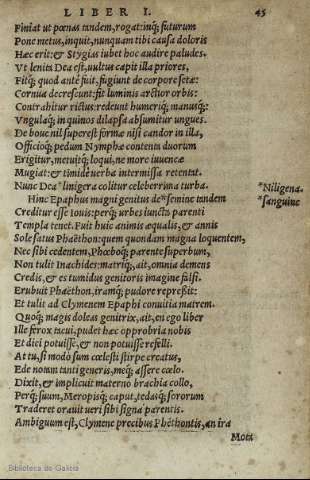 LIBER I. 45
Finiat ut pœnas tandem, rogat: inq; futurum
Pone metus, inquit, nunquam tibi causa doloris
Hæc erit: & Stygias iubet hoc audire paludes.
Vt lenita Dea est, uultus capit illa priores,
Fitq; quod antè fuit, fugiunt de corpore setæ:
Cornua decrescunt: fit luminis arctior orbis:
Contrahitur rictus: redeunt humeriq; manusq;:
Vngulaq; in quinos dilapsa absumitur ungues.
De boue nil superest formæ nisi candor in illa,
Officioq; pedum Nymphe contenta duorum
Erigitur, metuitq; loqui, ne more iuuencæ
Mugiat: & timidè uerba intermissa retentat.
Nunc Dea *linigera colitur celeberrima turba. *Niligena.
Hinc Epaphus magni genitus de *semine tandem *sanguine
Creditur esse Iouis: perq; urbes iuncta parenti
Templa tenet. Fuit huic animis æqualis, & annis
Sole satus Phaëthon: quem quondam magna loquentem,
Nec sibi cedentem, Phœboq; parente superbum,
Non tulit Inachides: matriq;, ait, omnia demens
Credis, & es tumidus genitoris imagine falsi.
Erubuit Phaëthon, iramq; pudore repreßit:
Et tulit ad Clymenem Epaphi conuitia matrem.
Quoq; magis doleas genitrix, ait, en ego liber
Ille ferox tacui, pudet hæc opprobria nobis
Et dici potuisse, & non potuisse refelli.
At tu, si modò sum cœlesti stirpe creatus,
Ede notam tanti generis, meq; assere cœlo.
Dixit, & implicuit materno brachia collo,
Perq; suum, Meropisq; caput, tedasq; sororum
Traderet orauit ueri sibi signa parentis.
Ambiguum est, Clymene precibus Phëthontis, an ira
Mota
Biblioteca de Galicia